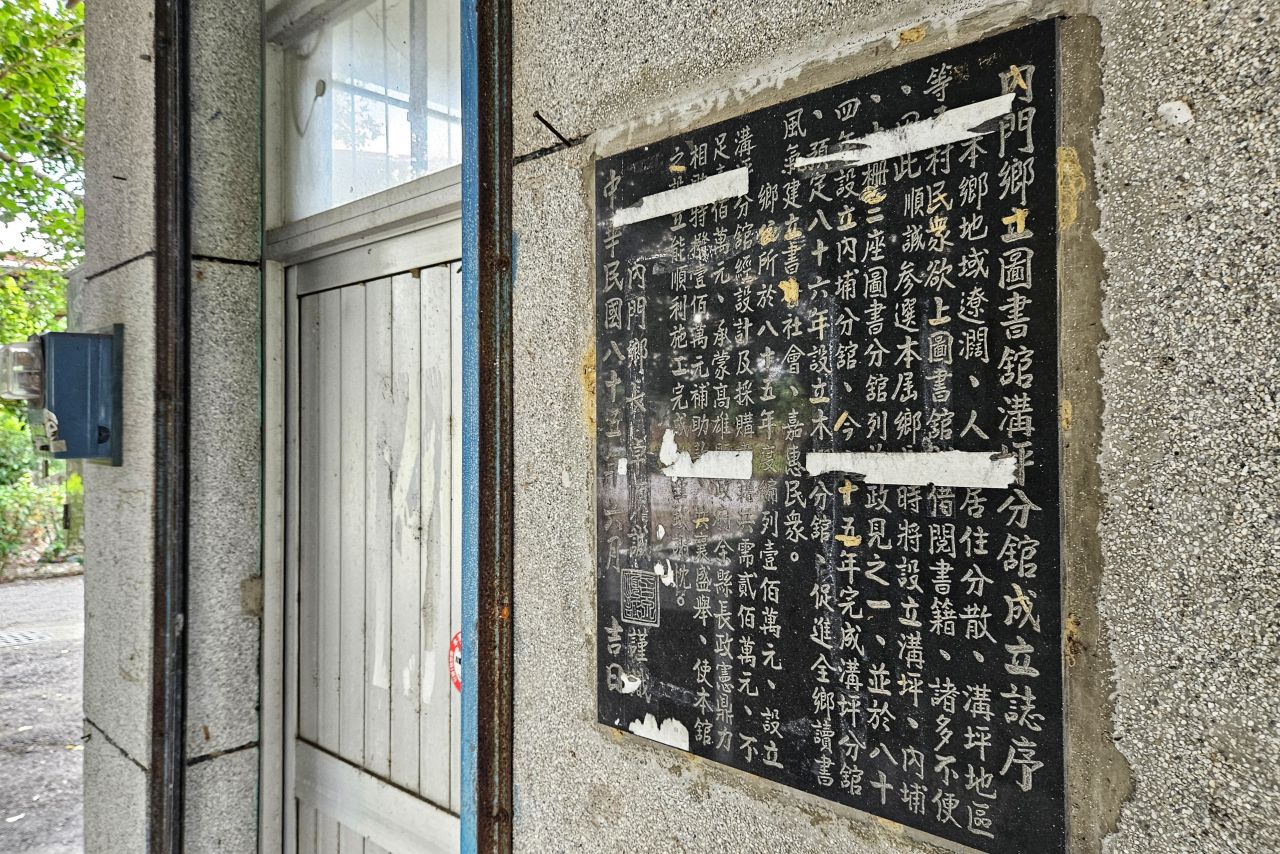 內門鄉立圖書舘溝坪分舘成立誌序
本鄉地域遼濶、人居住分散、溝坪地區
等村民衆欲上圖書舘借閱書籍、諸多不便
、此順誠參選本屆鄉時將設立溝坪、內埔
、木柵二座圖書分舘列政見之一、並於八十
四年設立內埔分舘、今十五年完成溝坪分舘
、預定八十六年設立木分舘、促進全鄉讀書
風氣建立書社會、嘉惠民衆。
鄉公所於八十五年度編列壹佰萬元、設立
溝坪分舘經設計及採購需貳佰萬元、不
足壹佰萬元、承蒙髙雄全縣長政憲鼎力
相助特撥壹佰萬元補助盛舉、使本舘
之設立能順利施工完忱。
內門鄉長謹誠
中華民國八十五年六月吉日